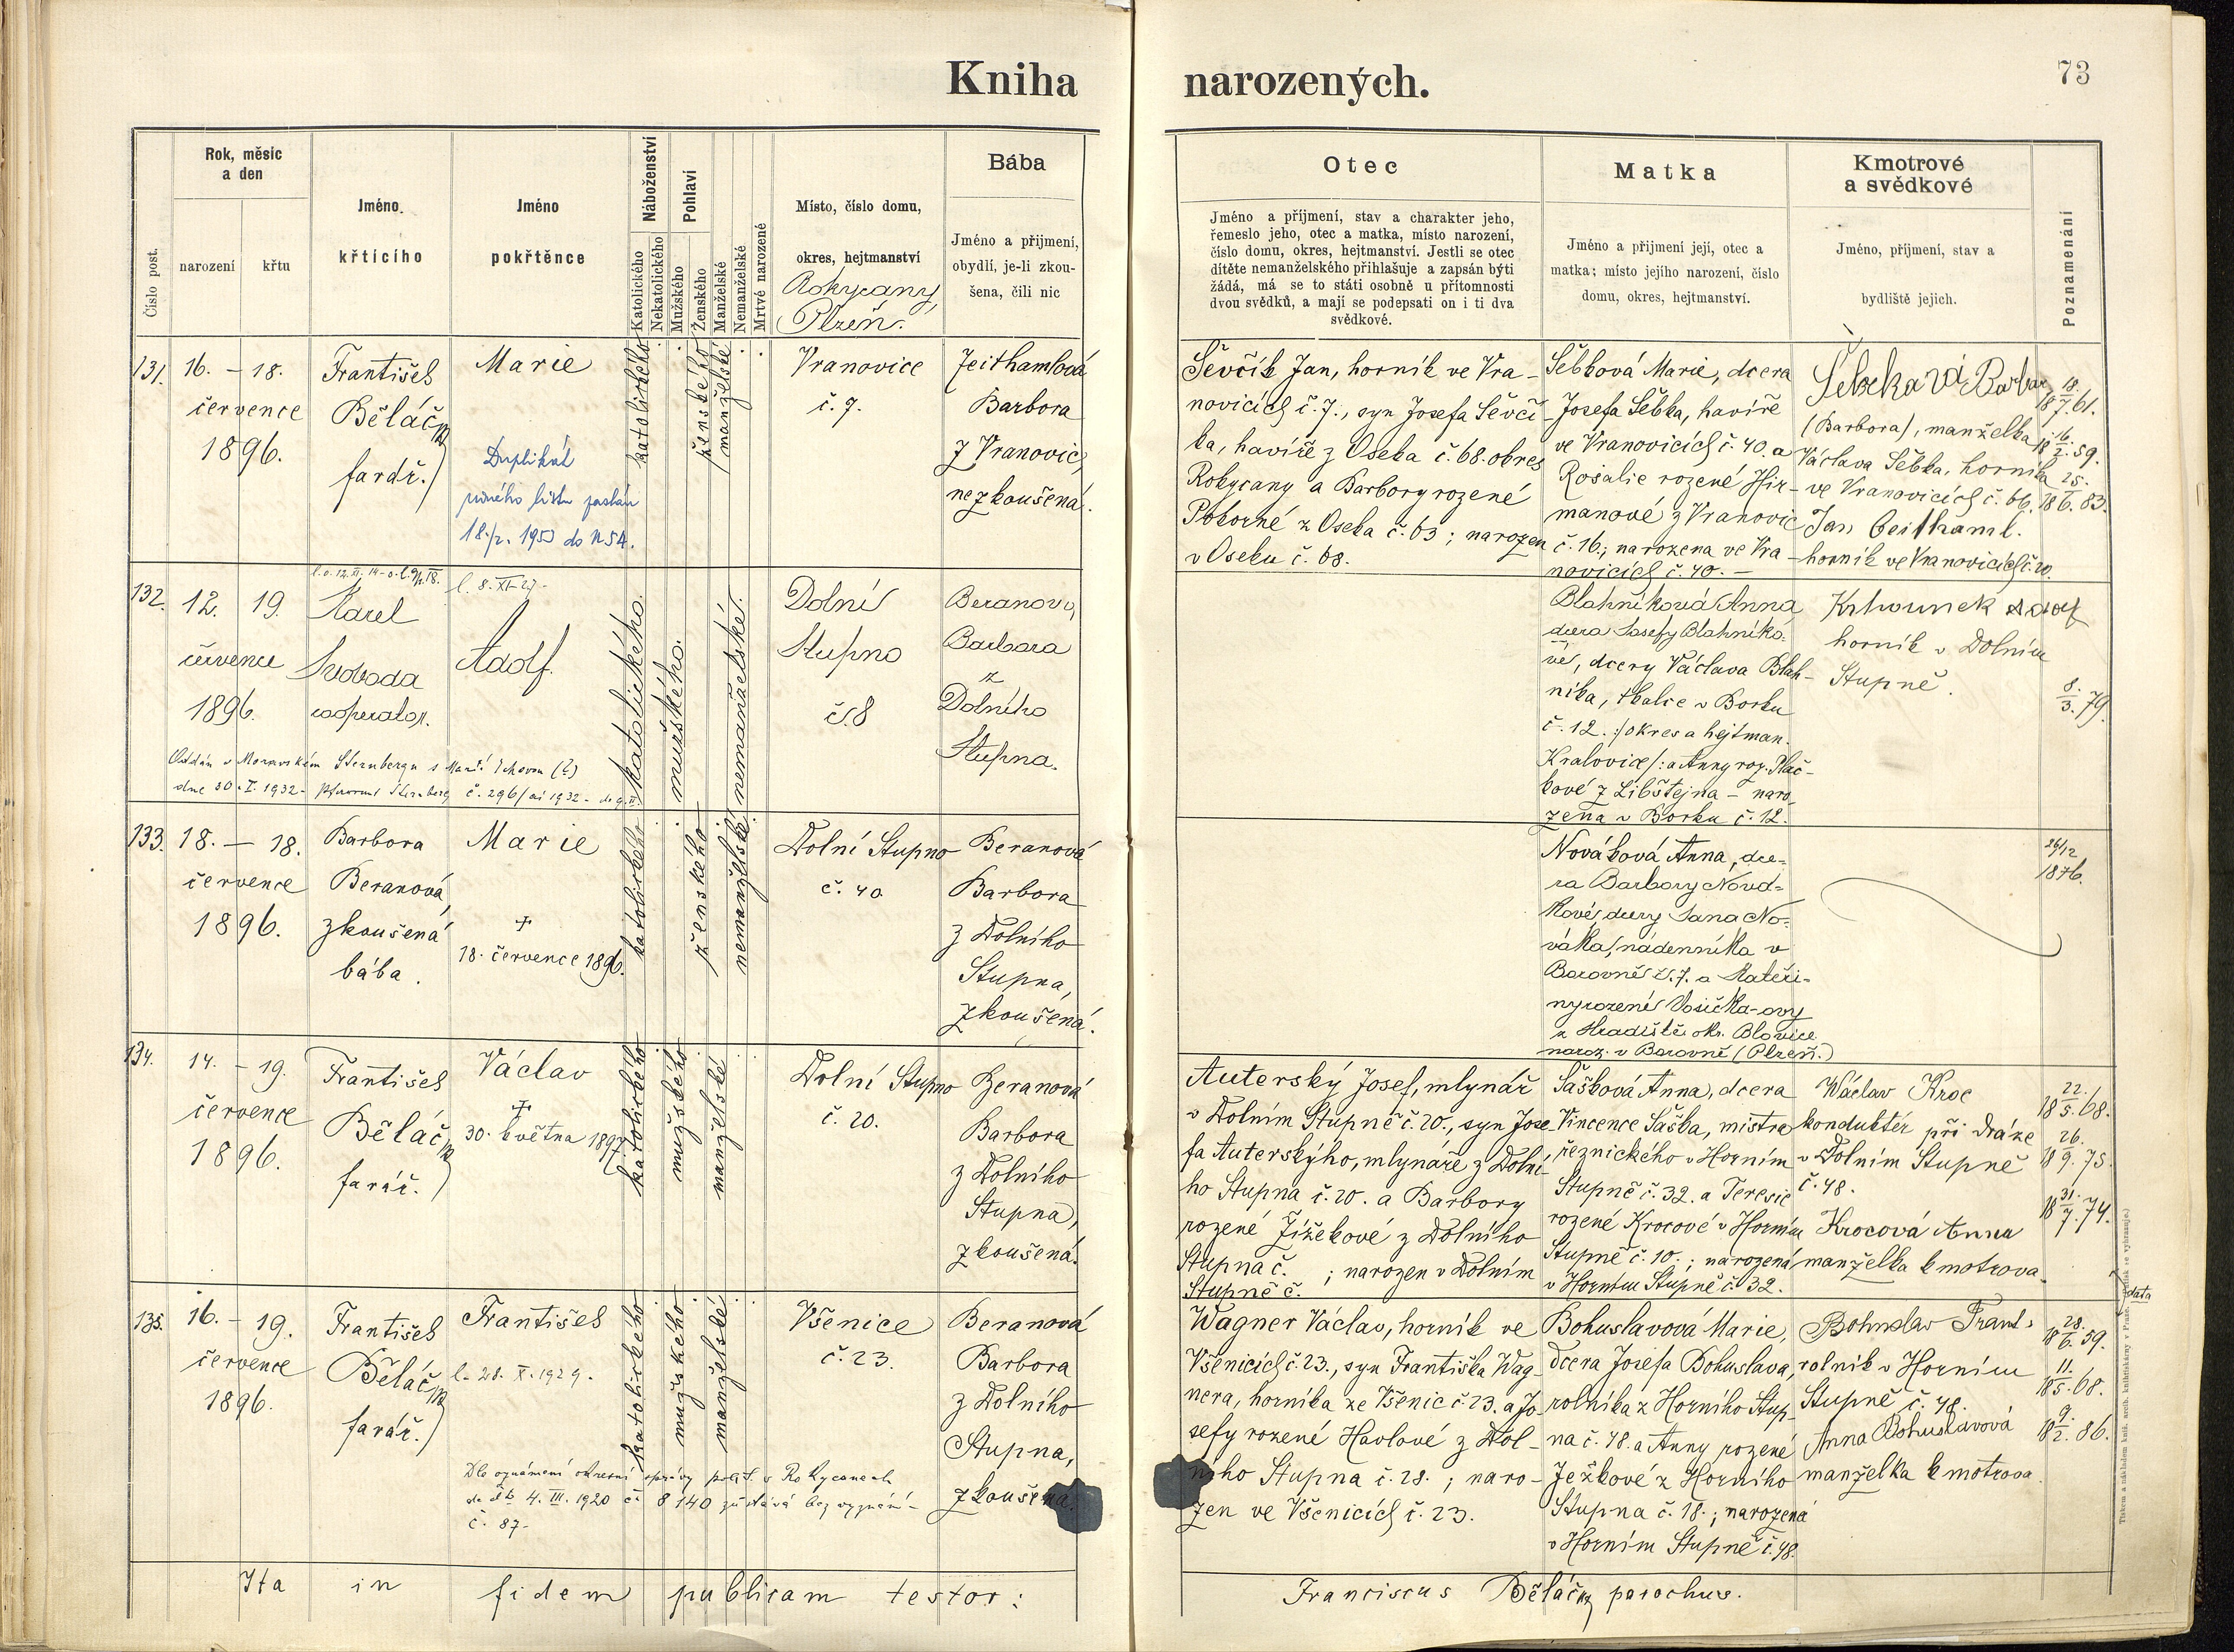 Kniha narozených.
73
Číslo post.
Rok, měsíc
a den
narození
křtu
Jméno
křtícího
Jméno
pokřtěnce
Náboženství
Katolického
Nekatolického
Pohlaví
Mužského
Ženského
Manželské
Nemanželské
Mrtvé narozené
Místo, číslo domu,
okres, hejtmanství
Rokycany,
Plzeň.
Bába
Jméno a přijmení,
obydlí, je-li zkou-
šena, čili nic
Otec
Jméno a příjmení, stav a charakter jeho,
řemeslo jeho, otec a matka, místo narození,
číslo domu, okres, hejtmanství. Jestli se otec
dítěte nemanželského přihlašuje a zapsán býti
žádá, má se to státi osobně u přítomnosti
dvou svědků, a mají se podepsati on i ti dva
svědkové.
Matka
Jméno a přijmení její, otec a
matka; místo jejího narození, číslo
domu, okres, hejtmanství.
Kmotrové
a svědkové
Jméno, příjmení, stav a
bydliště jejich.
Poznamenání
131.
16. – 18.
července
1896.
František
Běláč
farář.
Marie
Duplikát
18./2. 1950 do
katolického
ženského
manželské
Vranovice
č. 7.
Jeithamlová
Barbora
z Vranovic,
nezkoušená.
Ševčík Jan, horník ve Vra-
novicích č. 7., syn Josefa Ševčí-
ka, havíře z Oseka č. 68. okres
Rokycany a Barbory rozené
Pokorné z Oseka č. 63; narozen
v Oseku č. 68.
Šebková Marie, dcera
Josefa Šebka, havíře
ve Vranovicích č. 40. a
Rosalie rozené Hir-
manové z Vranovic
č. 16.; narozena ve Vra-
novicích č. 40. –
Šebková Barbor
(Barbora), manželka
Václava Šebka, horníka
ve Vranovicích č. 66.
Jan Jeithaml.
horník ve Vranovicích č. 20.
18 18./7. 61.
18 16./2. 59.
18 25./6. 83.
132.
12. 19.
července
1896.
Karel
Svoboda
cooperator.
l. 8. XI. 27 –
Adolf.
Oddán v Moravském Šternbergu s Marií
dne 30. I. 1932 – Šternberg č. 296/ai 1932 –
katolického.
mužského.
nemanželské.
Dolní
Stupno
č. 8
Beranová
Barbara
z
Dolního
Stupna.
Blahníková Anna,
dcera Josefy Blahníko-
vé, dcery Václava Blah-
níka, tkalce v Borku
č. 12. :/okres a hejtman.
Kralovice/: a Anny roz. Plač-
kové z Libštejna – naro-
zena v Borku č. 12.
Krhounek Adolf
horník v Dolním
Stupně.
8./3. 79.
133.
18. – 18.
července
1896.
Barbora
Beranová,
zkoušená
bába.
Marie
†
18. července 1896.
katolického
ženského
nemanželské
Dolní Stupno
č. 40
Beranová
Barbora
z Dolního
Stupna,
zkoušená.
Nováková Anna, dce-
ra Barbory Nová-
kové, dcery Jana No-
váka, nádenníka v
Borovně č. 7. a Kateři-
ny rozené Vosička-ovy
z Hradiště okr. Blovice
naroz. v Borovně (Plzeň.)
26/12
1876.
134.
14. – 19.
července
1896.
František
Běláč
farář.
Václav
†
30. května 1897.
katolického
mužského
manželské
Dolní Stupno
č. 20.
Beranová
Barbora
z Dolního
Stupna,
zkoušená.
Auterský Josef, mlynář
v Dolním Stupně č. 20., syn Jose-
fa Auterskýho, mlynáře z Dolní-
ho Stupna č. 20. a Barbory
rozené Jížekové z Dolního
Stupna č. ; narozen v Dolním
Stupně č.
Šašková Anna, dcera
Vincence Šaška, mistra
řeznického v Horním
Stupně č. 32. a Teresie
rozené Krocové v Horním
Stupně č. 10.; narozená
v Horním Stupně č. 32.
Wáclav Kroc
konduktér při dráze
v Dolním Stupně
č. 48.
Krocová Anna
manželka kmotrova.
18 22./5. 68.
18 26./9. 75.
18 31./7. 74.
135.
16. – 19.
července
1896.
František
Běláč
farář.
František
l. 28. X. 1929.
Dle oznámení okresní správy polit. v Rokycanech
4. III. 1920 čí 8140 zůstává bez vyznání –
č. 87 –
katolického
mužského
manželské
Všenice
č. 23.
Beranová
Barbora
z Dolního
Stupna,
zkoušená.
Wagner Václav, horník ve
Všenicích č. 23., syn Františka Wag-
nera, horníka ze Všenic č. 23. a Jo-
sefy rozené Havlové z Dol-
ního Stupna č. 28. ; naro-
zen ve Všenicích č. 23.
Bohuslavová Marie,
dcera Josefa Bohuslava,
rolníka z Horního Stup-
na č. 48. a Anny rozené
Ježkové z Horního
Stupna č. 18.; narozená
v Horním Stupně č. 48.
Bohuslav Frant.
rolník v Horním
Stupně č. 48.
Anna Bohuslavová
manželka kmotrova.
data
18 28./6. 59.
18 11./5. 68.
18 9./2. 86.
Ita in fidem publicam testor:
Franciscus Běláč parochus.